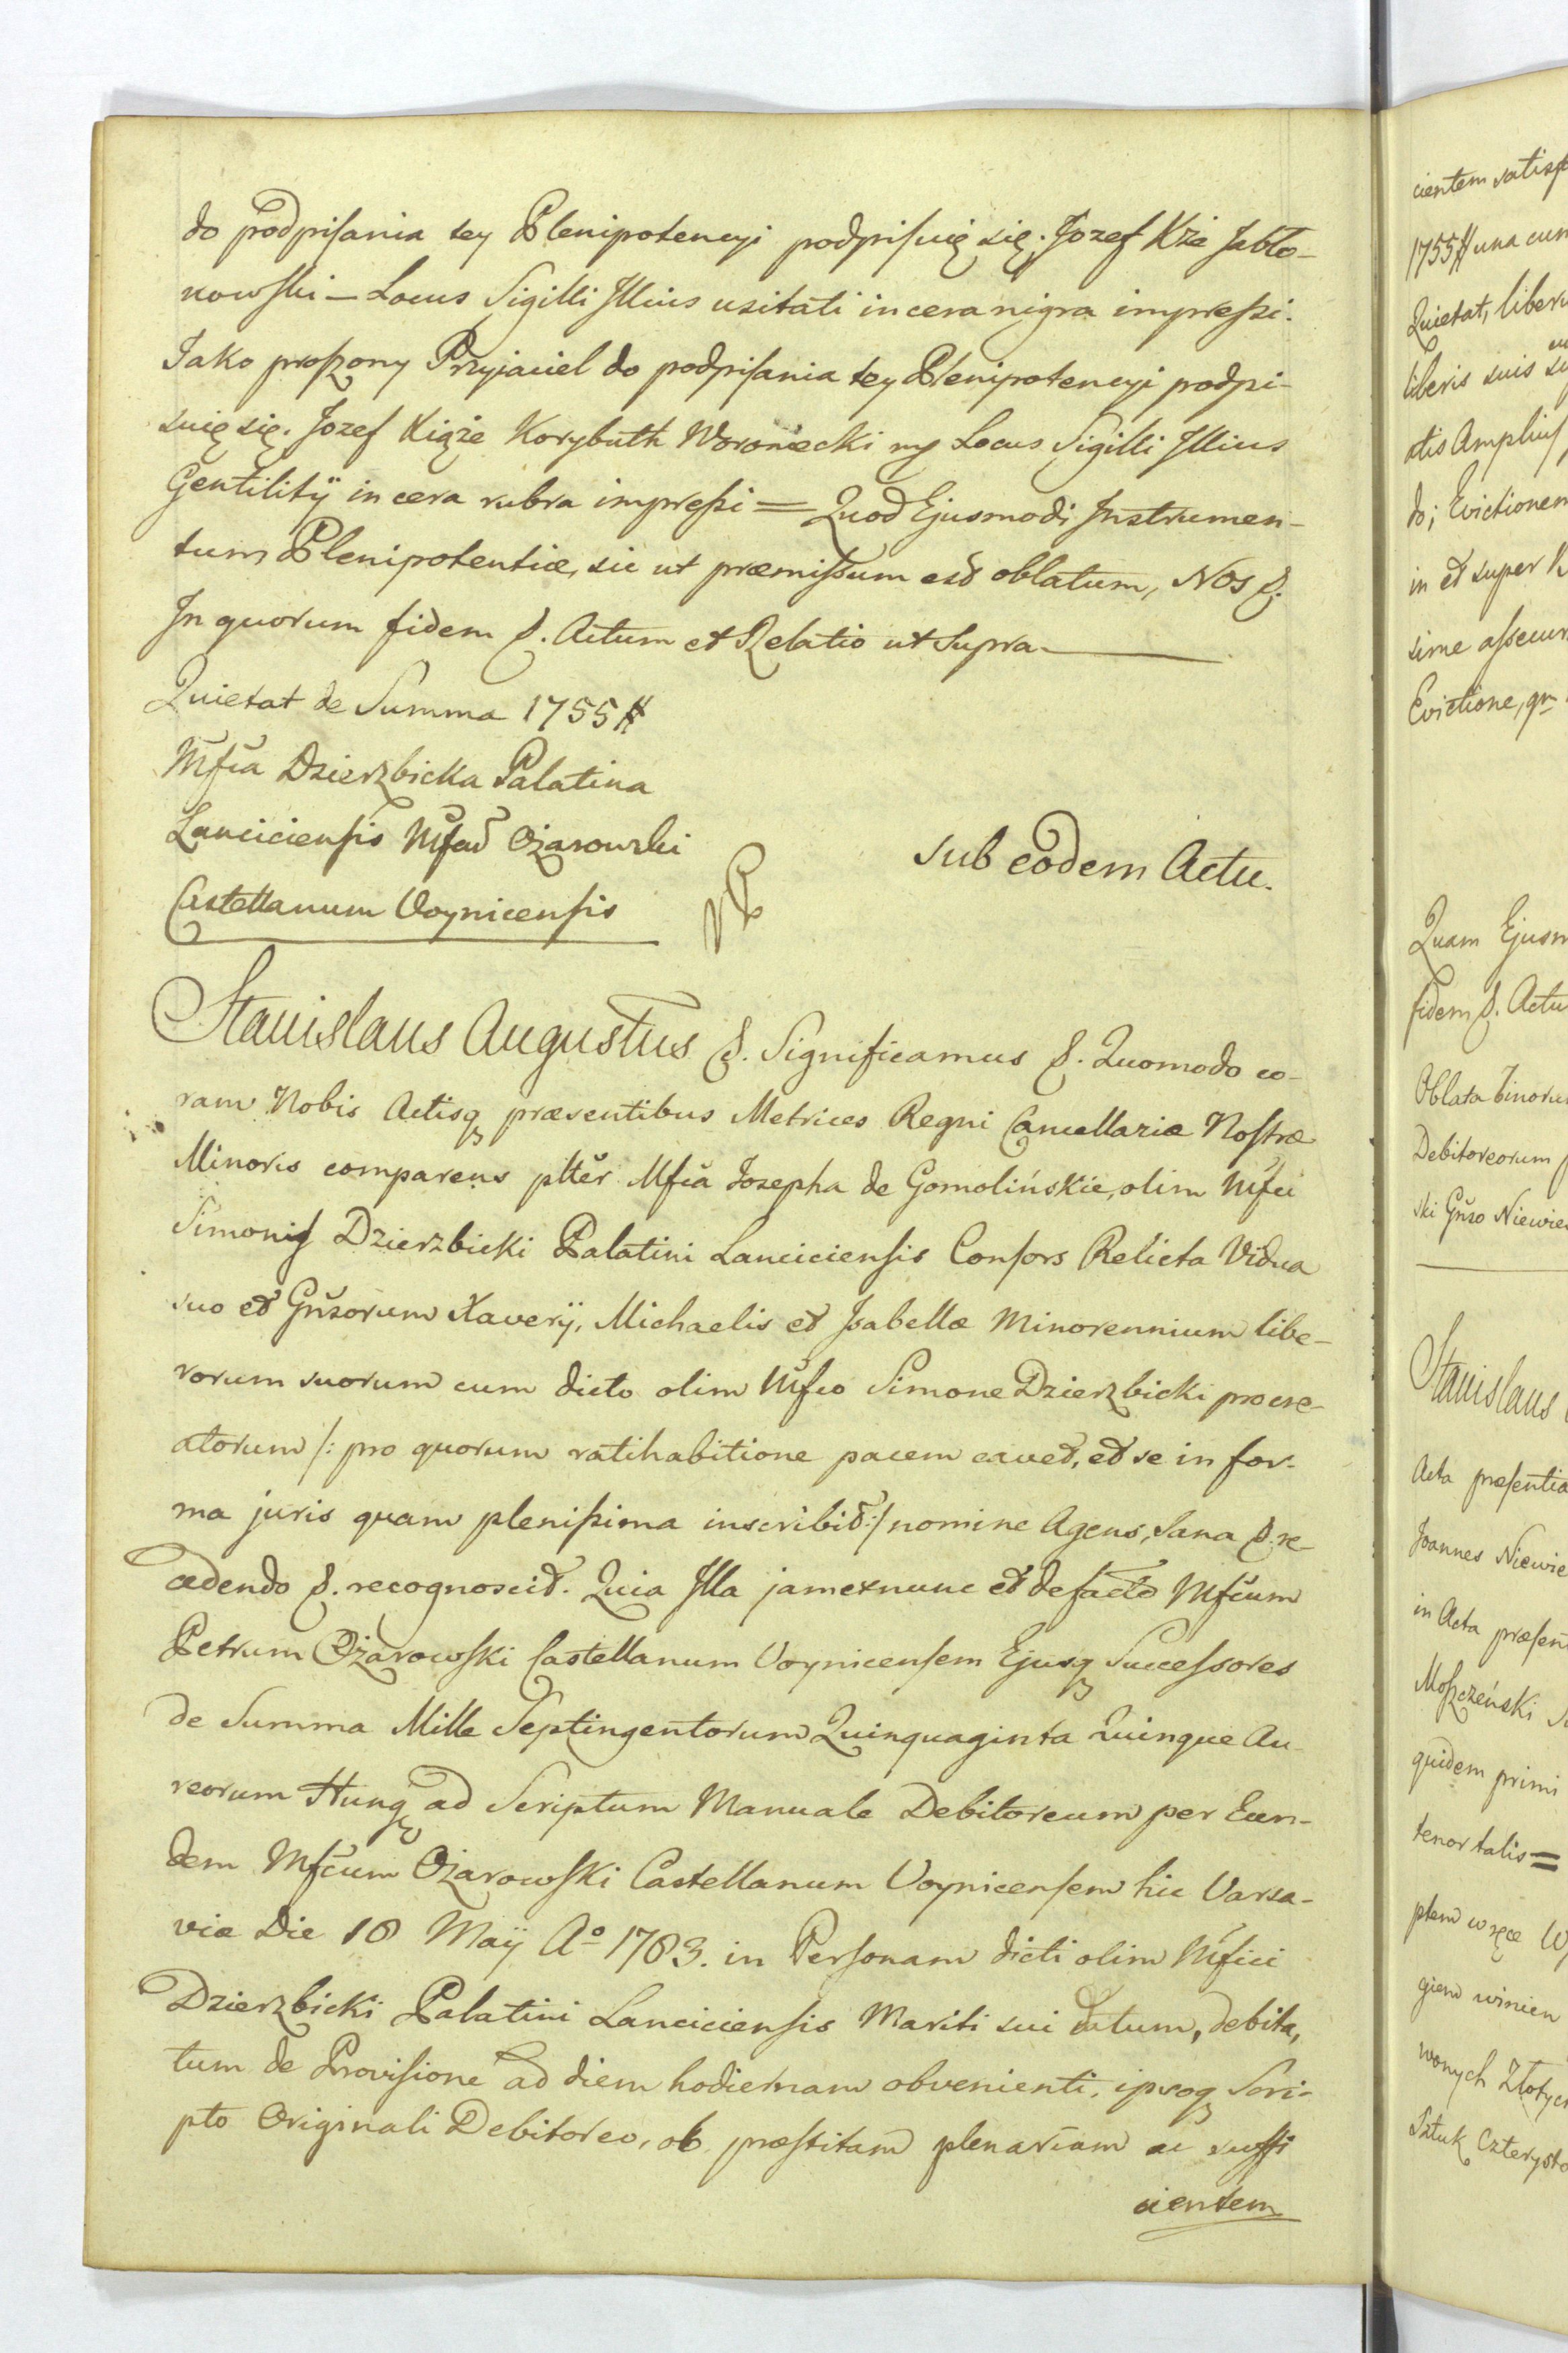 do podpisania tey Plenipotencyi podpisuię się. Jozef Xże Jabło-
nowski — Locus Sigilli Illius usitati in cera nigra impressi.
Jako proszony Przyjaciel do podpisania tey Plenipotencyi podpi-
suię się. Jozef Xiąże Korybuth Woroniecki mp Locus Sigilli Illius
Gentilitÿ in cera rubra impressi = Quod Ejusmodi Instrumen-
tum Plenipotentiæ, sic ut præmissum est oblatum, Nos &.
In quorum fidem &. Actum et Relatio ut Supra.
Quietat de Summa 1755 #
Mfca Dzierzbicka Palatina
Lanciciensis Mfcum Ożarowski
Castellanum Voynicensis
Sub eodem Actu.
Stanislaus Augustus &. Significamus &. Quomodo co-
ram Nobis Actisq præsentibus Metrices Regni Cancellariæ Nostræ
Minoris comparens pltter Mfca Josepha de Gomolińskie, olim Mfci
Simonis Dzierzbicki Palatini Lanciciensis Consors Relicta Vidua
suo et Gnsorum Xaverÿ, Michaelis et Isabellæ Minorennium libe-
rorum suorum cum dicto olim Mfco Simone Dzierzbicki procre-
atorum /: pro quorum ratihabitione pacem cavet, et se in for-
ma juris quam plenissima inscribit :/ nomine Agens, Sana &. re-
cedendo &. recognoscit. Quia Illa jam exnunc et defacto Mfcum
Petrum Ożarowski Castellanum Voynicensem Ejusq Successores
de Summa Mille Septingentorum Quinquaginta Quinque Au-
reorum Hung ad Scriptum Manuale Debitoreum per Eun-
dem Mfcum Ożarowski Castellanum Voynicensem hic Varsa-
viæ Die 18 Maÿ Aº 1783. in Personam dicti olim Mfici
Dzierzbicki Palatini Lanciciensis Mariti sui datum, debita,
tum de Provisione ad diem hodiernam obvenienti, ipsoq Scri-
pto Originali Debitoreo, ob præstitam plenariam ac suffi
cientem
cientem satisf
1755 # una cum
Quietat, liber
liberis suis
atis Amplius
do; Evictionem
in et super
sime assecur
Evictione, qm
Quam Ejusm
fidem &. Actu
Oblata binoru
Debitoreorum
ski Gnso Niewie
Stanislaus
Acta præsentia
Joannes Niewie
in Acta præsen
Moszczeński
quidem primi
tenor talis =
ptem w ręce
giem winien
wonych Złotyc
Sztuk Czterysto